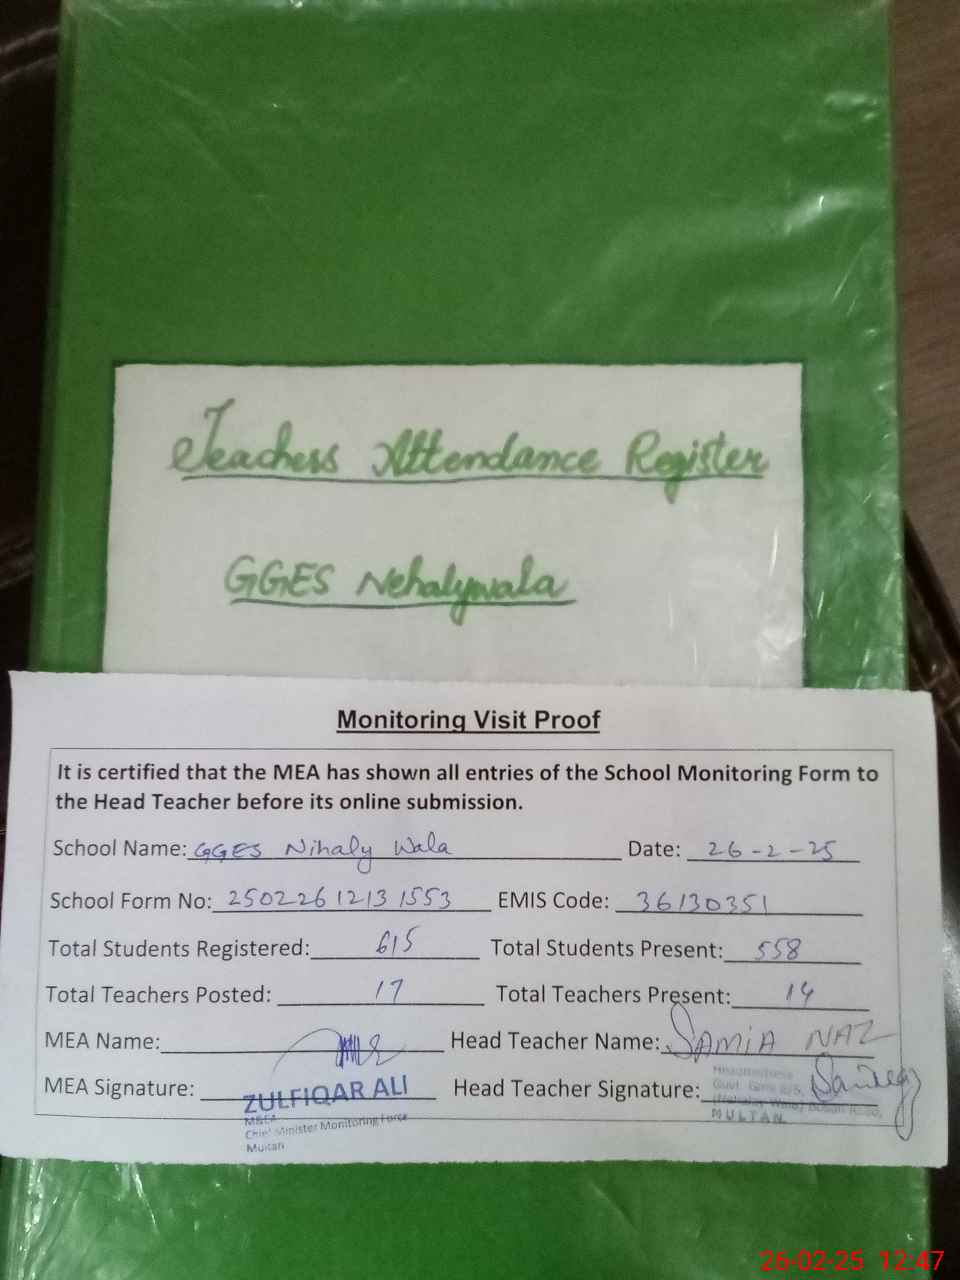 Teachers Attendance Register
GGES Nehalywala
Monitoring Visit Proof
It is certified that the MEA has shown all entries of the School Monitoring Form to
the Head Teacher before its online submission.
School Name: GGES Nihaly Wala Date: 26-2-25
School Form No: 25022612131553 EMIS Code: 36130351
Total Students Registered: 615 Total Students Present: 558
Total Teachers Posted: 17 Total Teachers Present: 14
MEA Name: Head Teacher Name: SAMIA NAZ
MEA Signature: Head Teacher Signature:
ZULFIQAR ALI
Chief Minister Monitoring Force
Multan
Headmistress
Govt. Girls E/S,
Bosan Road,
MULTAN
26-02-25 12:47